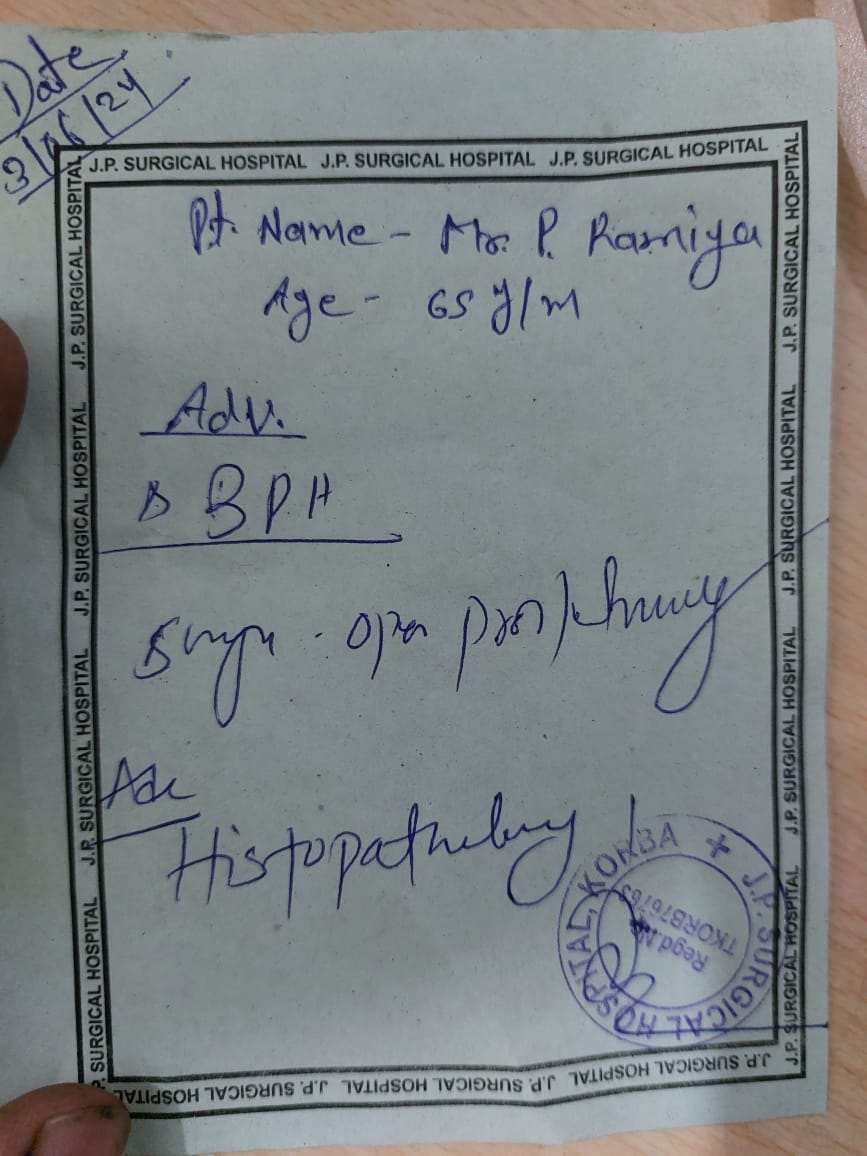 Date
3/06/24
J.P. SURGICAL HOSPITAL J.P. SURGICAL HOSPITAL J.P. SURGICAL HOSPITAL
Pt. Name - Mr. P. Ramiya
Age - 65 y/m
Adv.
BPH
open
Adv
Histopathology
J.P. SURGICAL HOSPITAL, KORBA
Regd.No.
J.P. SURGICAL HOSPITAL J.P. SURGICAL HOSPITAL J.P. SURGICAL HOSPITAL J.P. SURGICAL HOSPITAL
J.P. SURGICAL HOSPITAL J.P. SURGICAL HOSPITAL J.P. SURGICAL HOSPITAL J.P. SURGICAL HOSPITAL
J.P. SURGICAL HOSPITAL J.P. SURGICAL HOSPITAL J.P. SURGICAL HOSPITAL